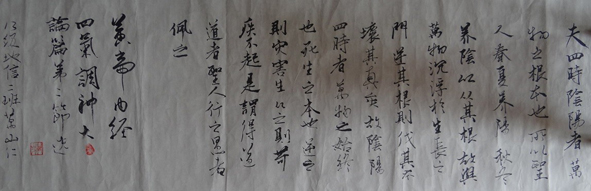 夫四時陰陽者萬
物之根本也所以聖
人春夏养陽秋冬
养陰以从其根故與
萬物沉浮於生長之
門逆其根則伐其本
壞其真矣故陰陽
四時者萬物之始終
也死生之本也逆之
則灾害生从之則苛
疾不起是謂得道
道者聖人行之愚者
佩之
黃帝内经
四氣調神大
論篇第二節选
二班